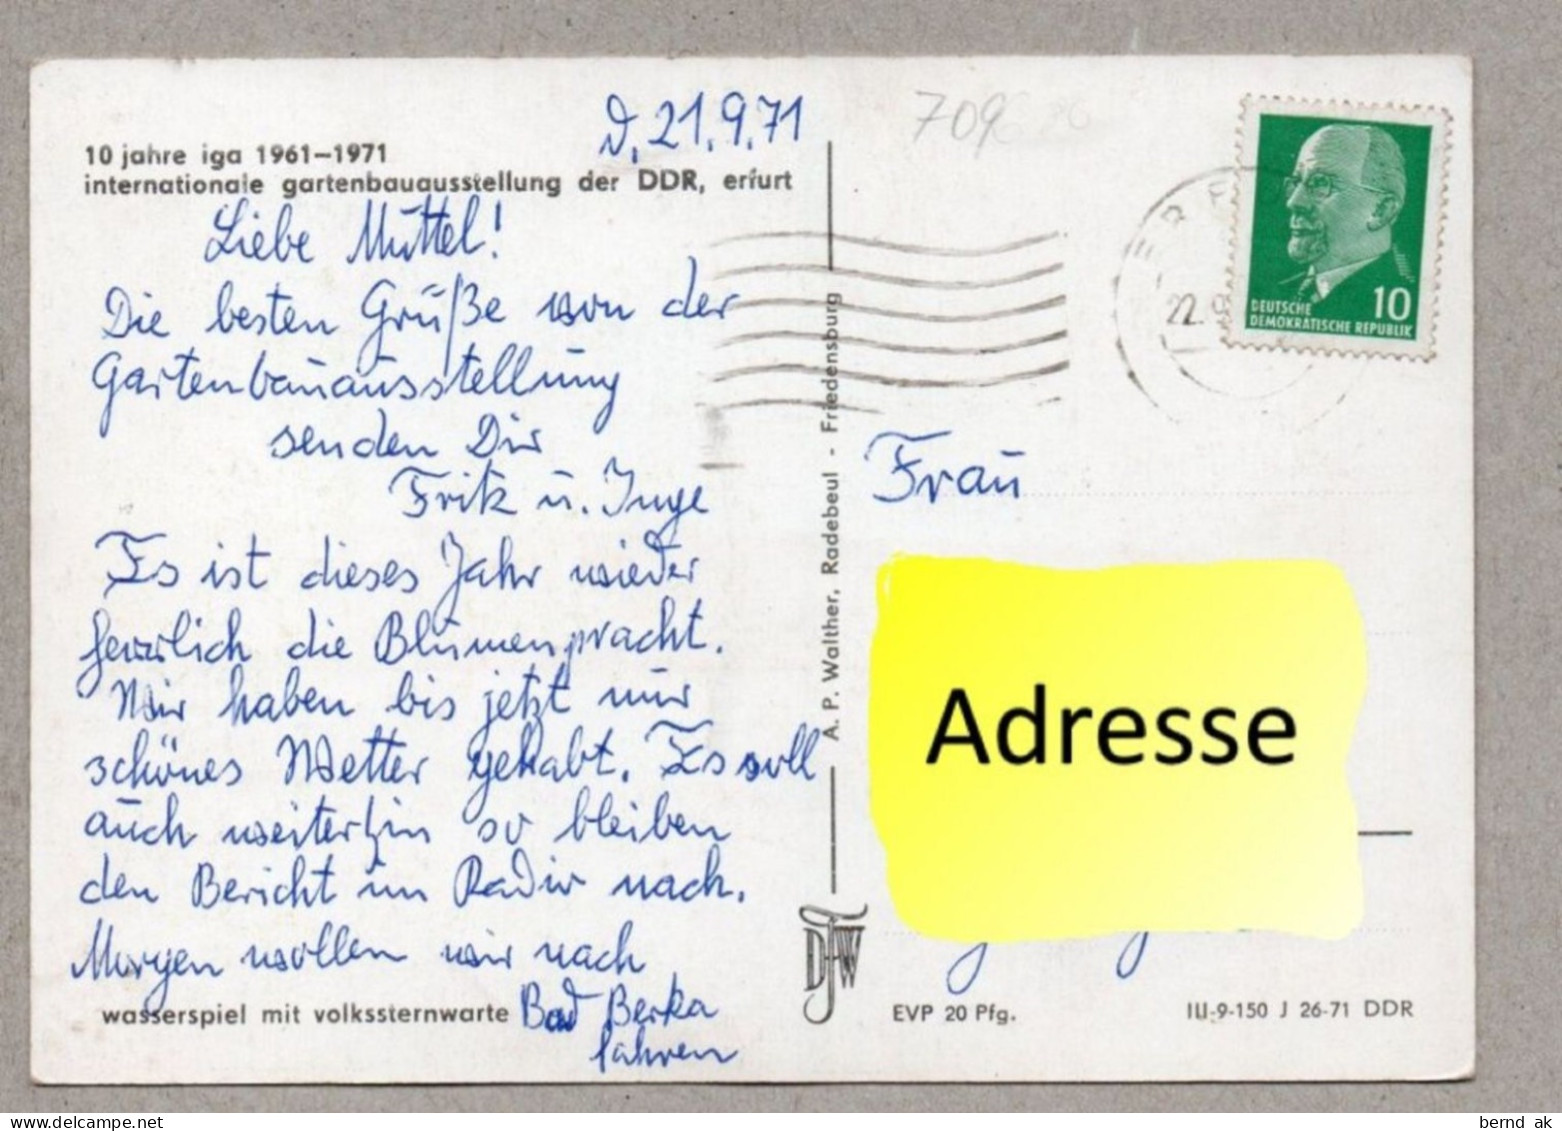 10 jahre iga 1961–1971
internationale gartenbauausstellung der DDR, erfurt
D, 21.9.71
Liebe Muttel!
Die besten Grüße von der
Gartenbauausstellung
senden Dir
Fritz u. Inge
Es ist dieses Jahr wieder
herrlich die Blumenpracht.
Wir haben bis jetzt nur
schönes Wetter gehabt. Es soll
auch weiterhin so bleiben
den Bericht im Radio nach.
Morgen wollen wir nach
Bad Berka
fahren
wasserspiel mit volkssternwarte
A. P. Walther, Radebeul - Friedensburg
DFW
709
ERF
22.9
DEUTSCHE
DEMOKRATISCHE REPUBLIK
10
Frau
Adresse
EVP 20 Pfg.
III-9-150 J 26-71 DDR
bernd ak